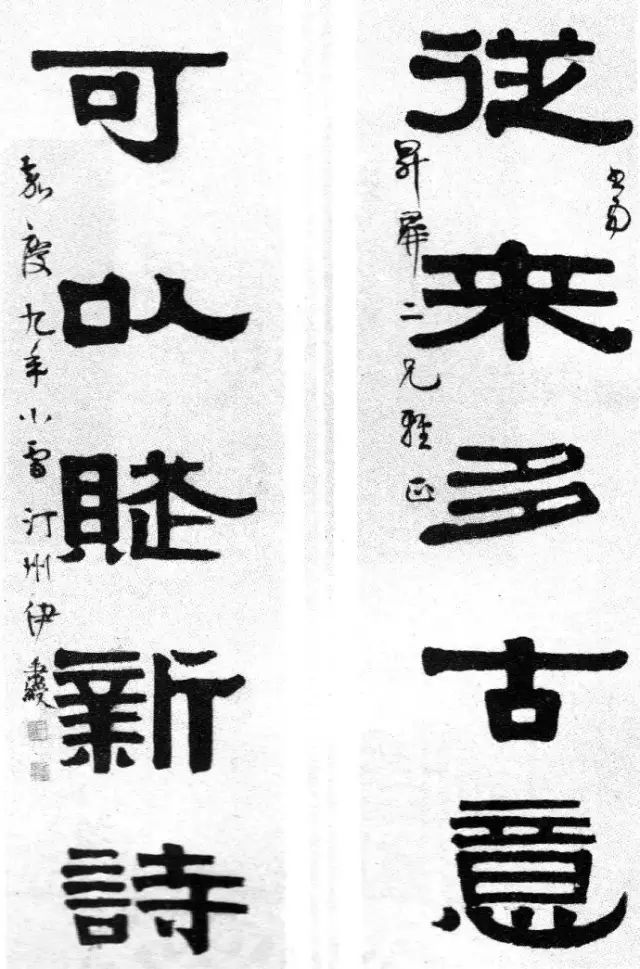 從来多古意
昇屏二兄雅正
可以賦新詩
嘉慶九年小雪汀州伊秉綬